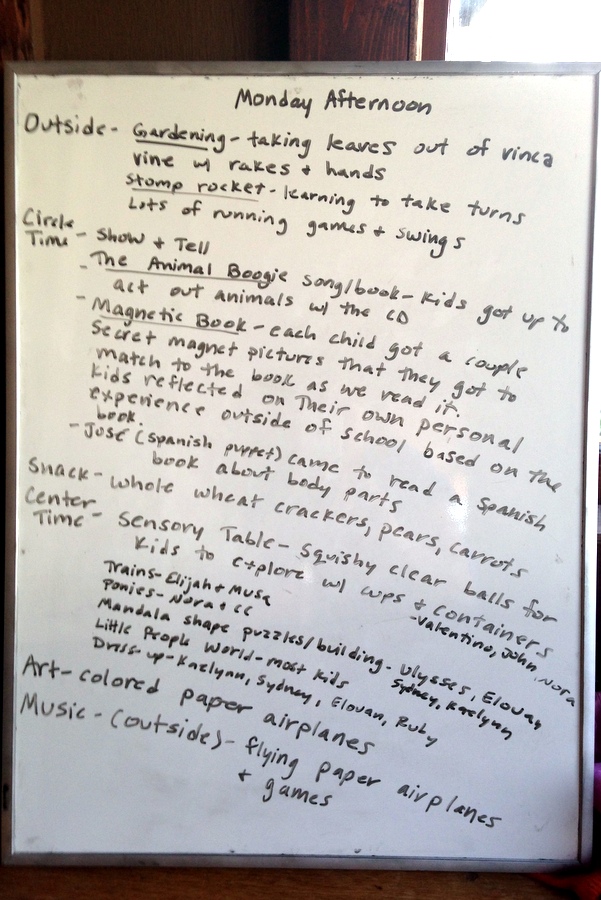 Monday Afternoon
Outside - Gardening - taking leaves out of vinca
vine w/ rakes + hands
Stomp rocket - learning to take turns
Lots of running games + swings
Circle
Time - Show + Tell
- The Animal Boogie song/book - kids got up to
act out animals w/ the CD
- Magnetic Book - each child got a couple
secret magnet pictures that they got to
match to the book as we read it.
Kids reflected on their own personal
experience outside of school based on the
book.
- José (spanish puppet) came to read a Spanish
book about body parts
Snack - whole wheat crackers, pears, carrots
Center
Time - Sensory Table - squishy clear balls for
kids to explore w/ cups + containers
- Valentino, John, Nora
Trains - Elijah + Musa
Ponies - Nora + CC
Mandala shape puzzles/building - Ulysses, Elovan
Sydney, Kaelynn
Little People World - most kids
Dress-up - Kaelynn, Sydney, Elovan, Ruby
Art - colored paper airplanes
Music - (outside) - flying paper airplanes
+ games